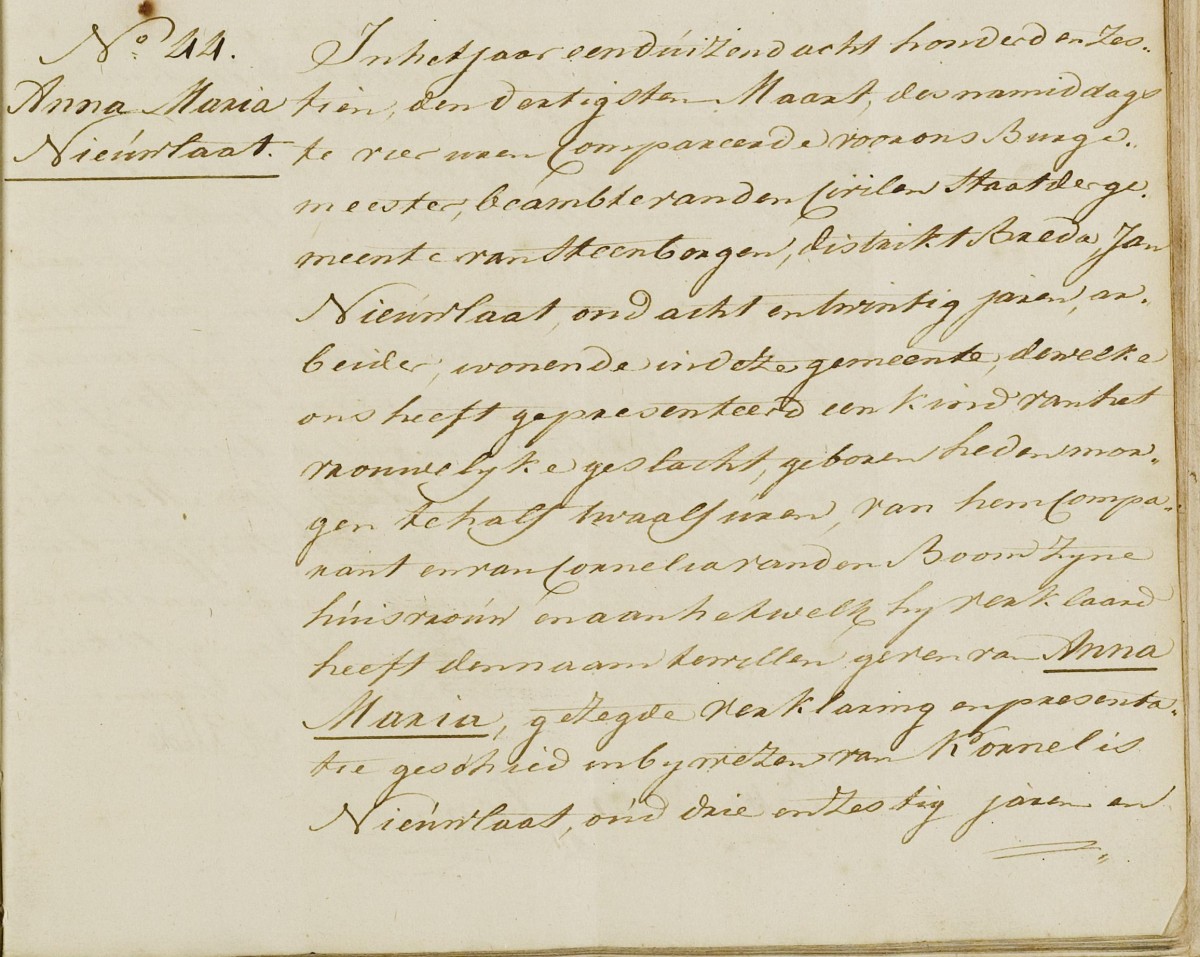 No. 44.
Anna Maria
Nieúwlaat.
In het jaar een dúizend acht honderd en zes„
tien, den dertigsten Maart, des namiddags
te vier uren Compareerde voor ons Burge„
meester, beambte van den Civilen Staat der ge„
meente van Steenbergen, distrikt Breda, Jan
Nieúwlaat, oud acht en twintig jaren, ar„
beider, wonende in deze gemeente, dewelke
ons heeft gepresenteerd een kind van het
vrouwelyke geslacht, geboren heden mor„
gen te half twaalf uren, van hem Compa„
rant en van Cornelia van den Boom Zyne
húisvroúw en aan hetwelk hy verklaard
heeft den naam te willen geven van Anna
Maria, gezegde verklaring en presenta„
tie geschied in bywezen van Kornelis
Nieúwlaat, oúd drie en zestig jaren en